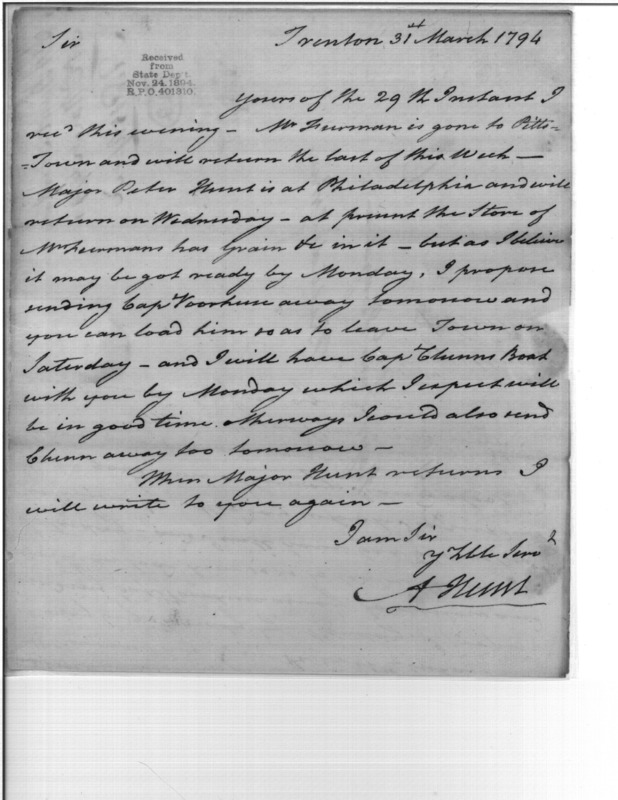 Trenton 31st March 1794
Sir
Received
from
State Dep't.
Nov. 24. 1894.
R.P.O. 401310.
yours of the 29th Instant I
recd this evening - Mr Furman is gone to Pitts=
=Town and will return the last of this Week -
Major Peter Hunt is at Philadelphia and will
return on Wednesday - at present the Store of
Mr Furmans has Grain &c in it - but as I believe
it may be got ready by Monday, I propose
sending Capt Voorhuse away tomorrow and
you can load him so as to leave Town on
Saturday - and I will have Capt Clunns Boat
with you by Monday which I expect will
be in good time. Otherways I could also send
Clunn away too tomorrow -
When Major Hunt returns I
will write to you again -
I am Sir
y Hble Servt
A Hunt